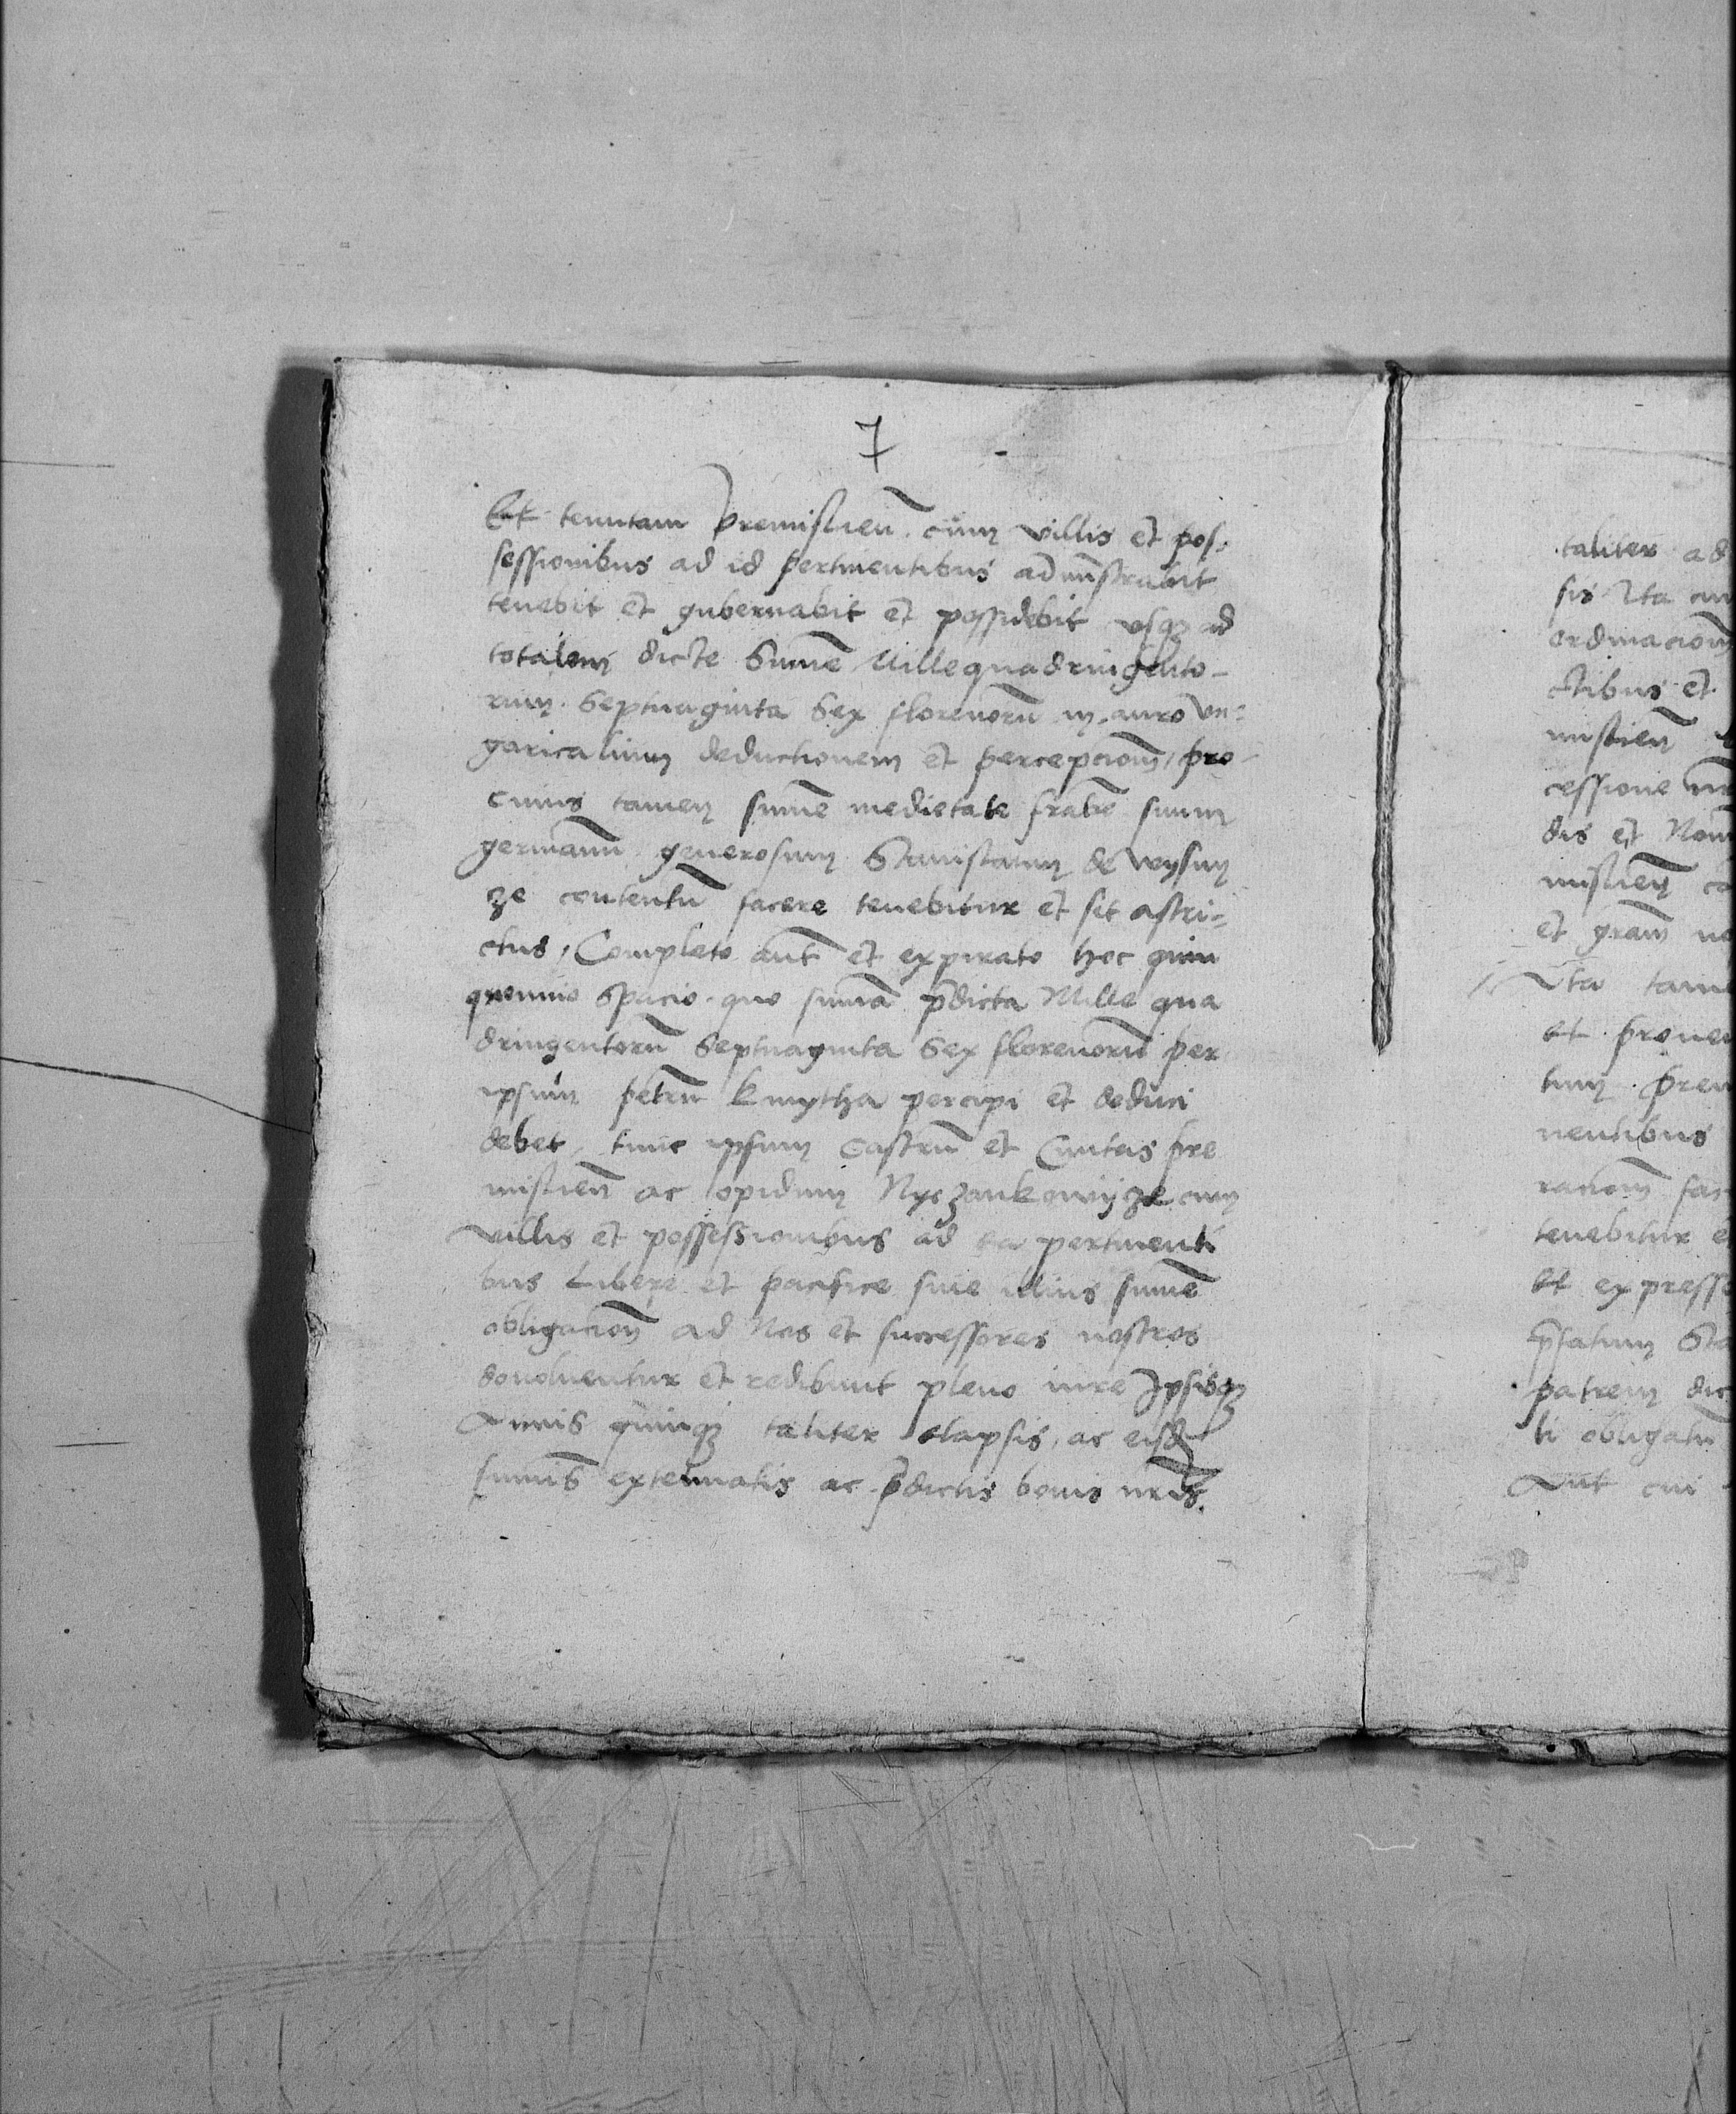 7
Et tenutam premislien̄. cum villis et pos-
sessionibus ad id pertinentibus adm̄nstrabit
tenebit et gubernabit et possidebit vsqꝫ ad
totalem dicte Sum̄e Mille quadringento-
rum. Septuaginta Sex florenorū in auro vn=
garicalium deductionem et percepcion̄, pro-
cuius tamen sum̄e medietate fratrē suum
germanū generosum Stanislaum de wysny
ze contentū facere tenebitur et sit astri=
ctus, Completo aut̄ et expirato hoc quin
quennio spacio. quo sum̄a p̄dicta Mille qua
dringentorū Septuaginta Sex florenorū per
ipsum petrū kmytha percipi et deduci
debet, tunc ipsum Castrū et Ciuitas pre
mislien̄ ac opidum Nyczankowijcze cum
villis et possessionibus ad ea pertinenti
bus Libere et pacifice sine illius sum̄e
obligacion̄ ad Nos et successores nostros
deuoluentur et redibunt pleno iure Ipsisqꝫ
Annis quinqꝫ taliter elapsis, ac eisd̄
sum̄is extenuatis ac p̄dictis bonis nr̄is.
taliter ad
sis Ita
ordinacion̄
ctibus et
mislien̄
cessione
dis et
mislien̄
et gram̄
Ita
et
tum
nentibus
racion̄
tenebitur
et expresse
p̄fatum
patrem
ti obligatū
Aut cui